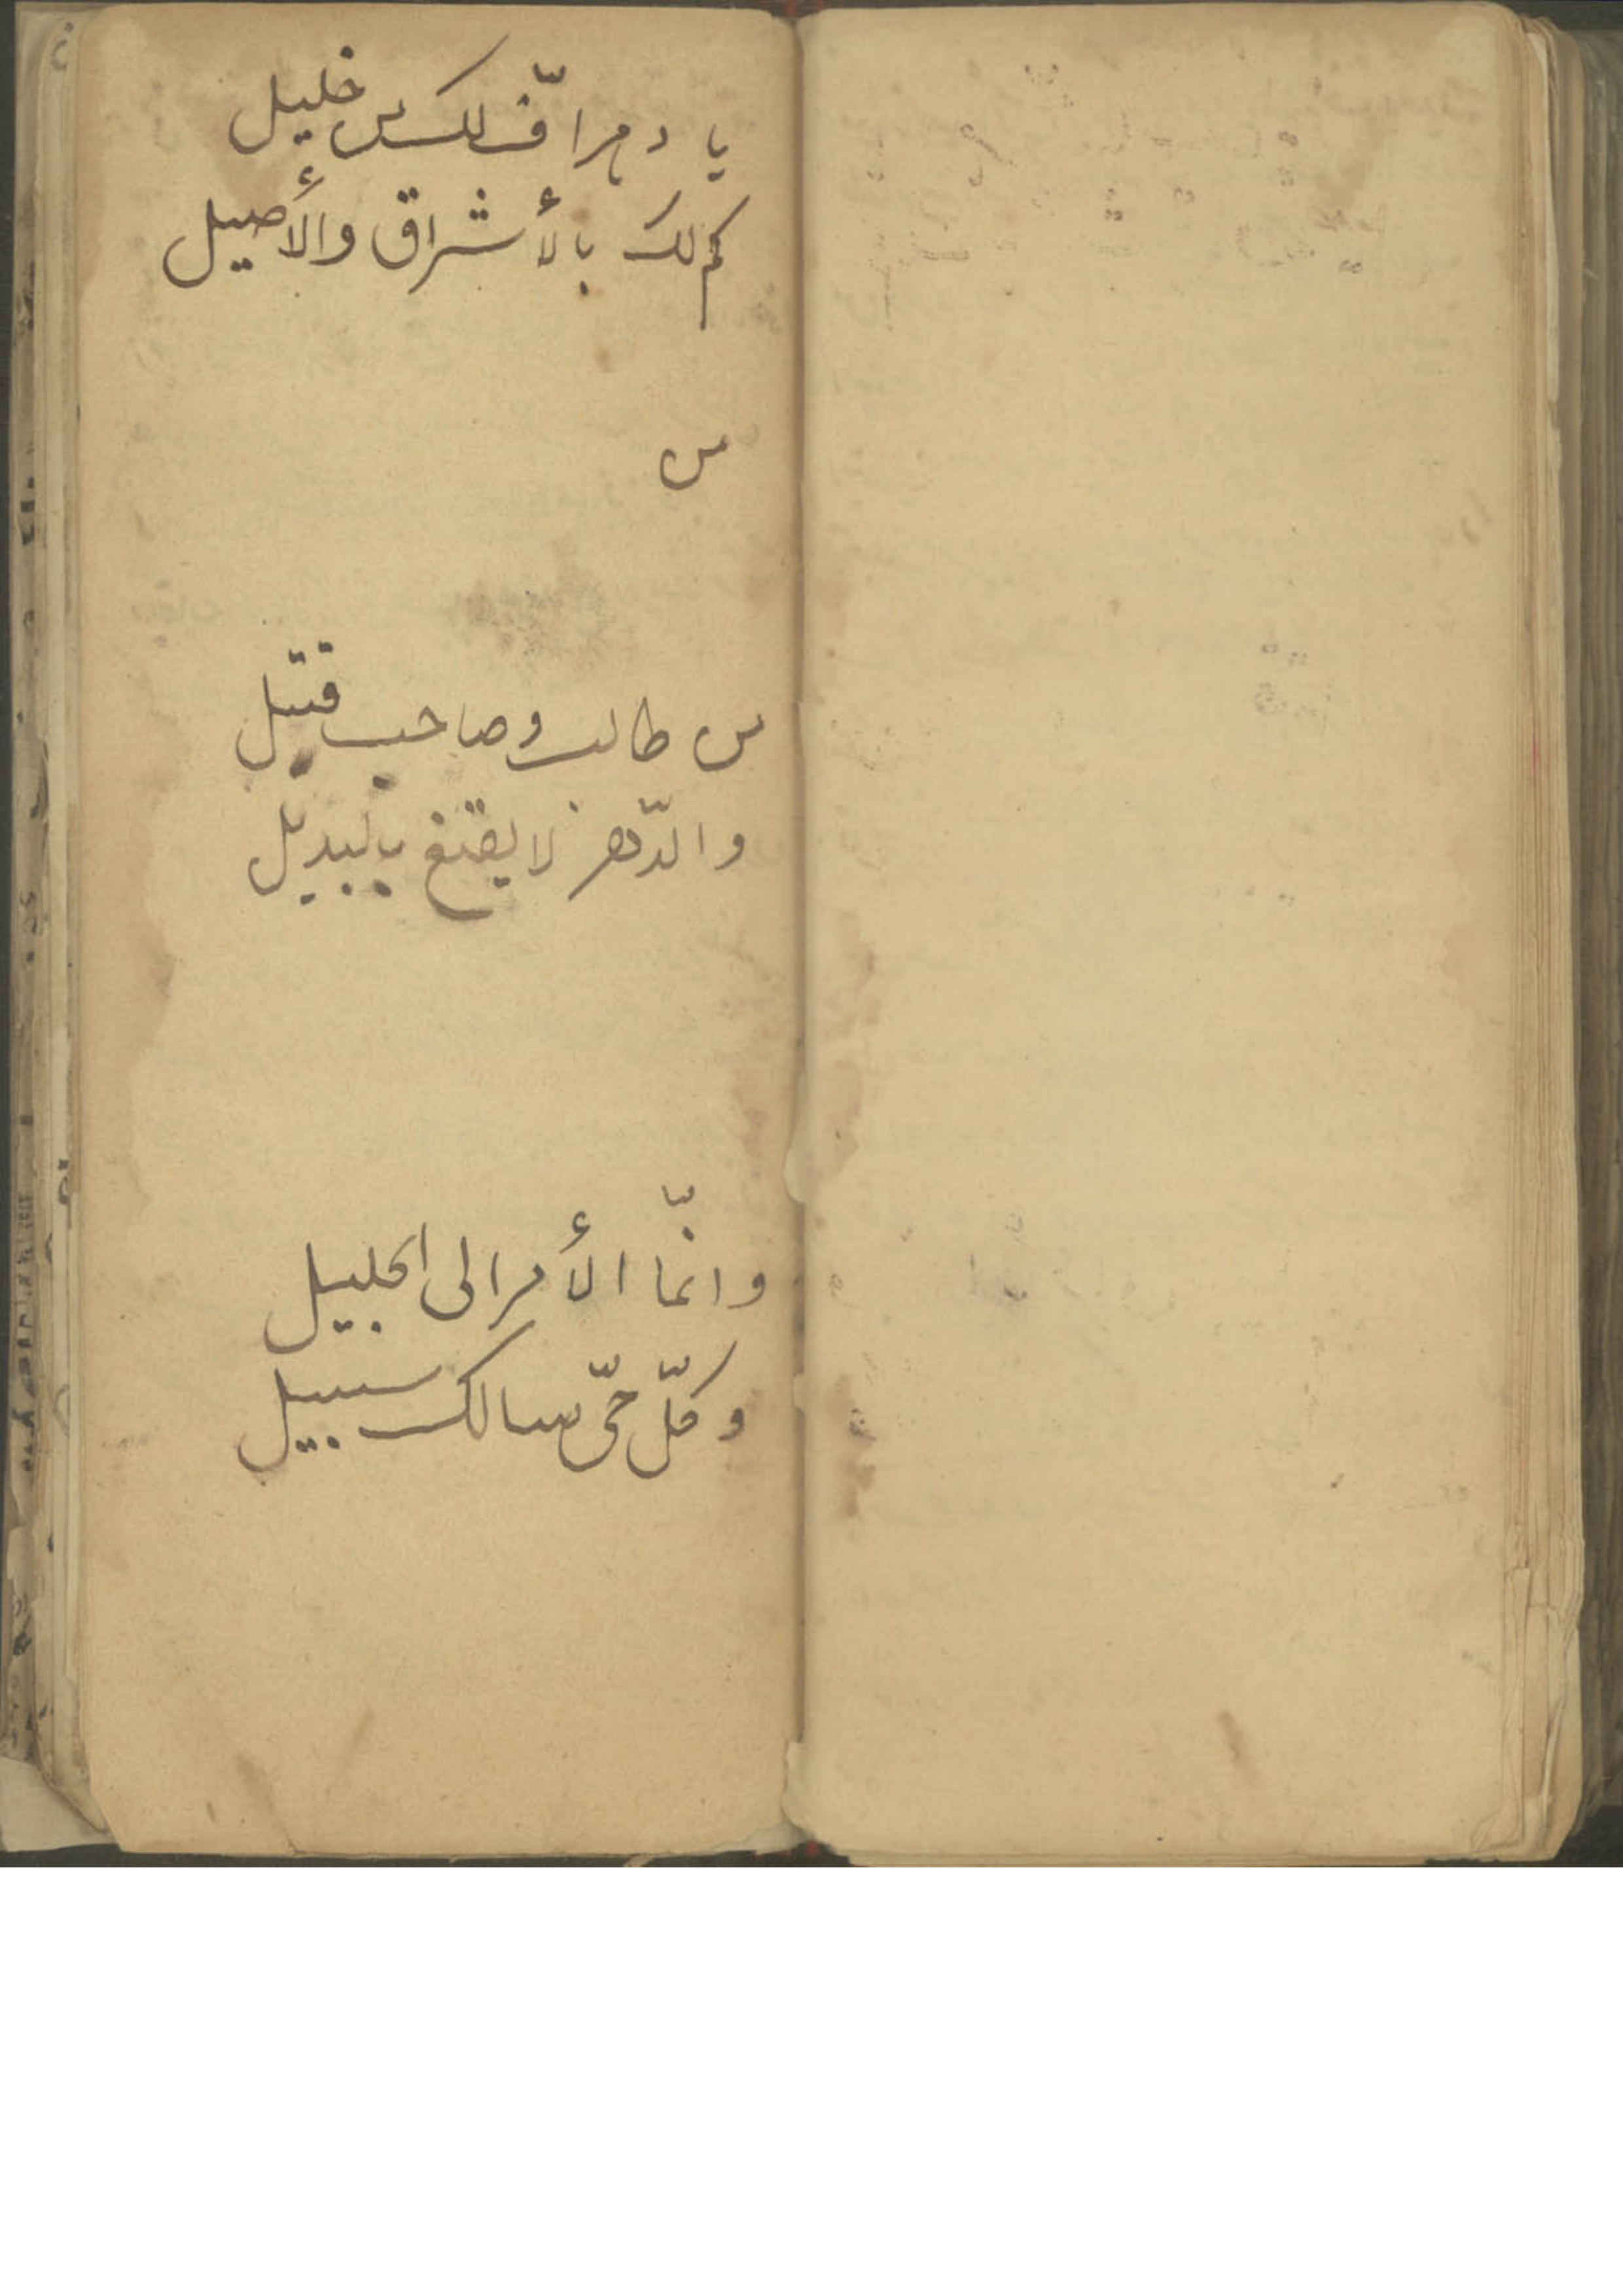 يا دهر افّ لك من خليل
كم لك بالأشراق والأصيل
من
من طالب وصاحب قتيل
والدّهر لا يقنع بالبديل
وانّما الأمر الى الجليل
وكلّ حىّ سالك سبيل